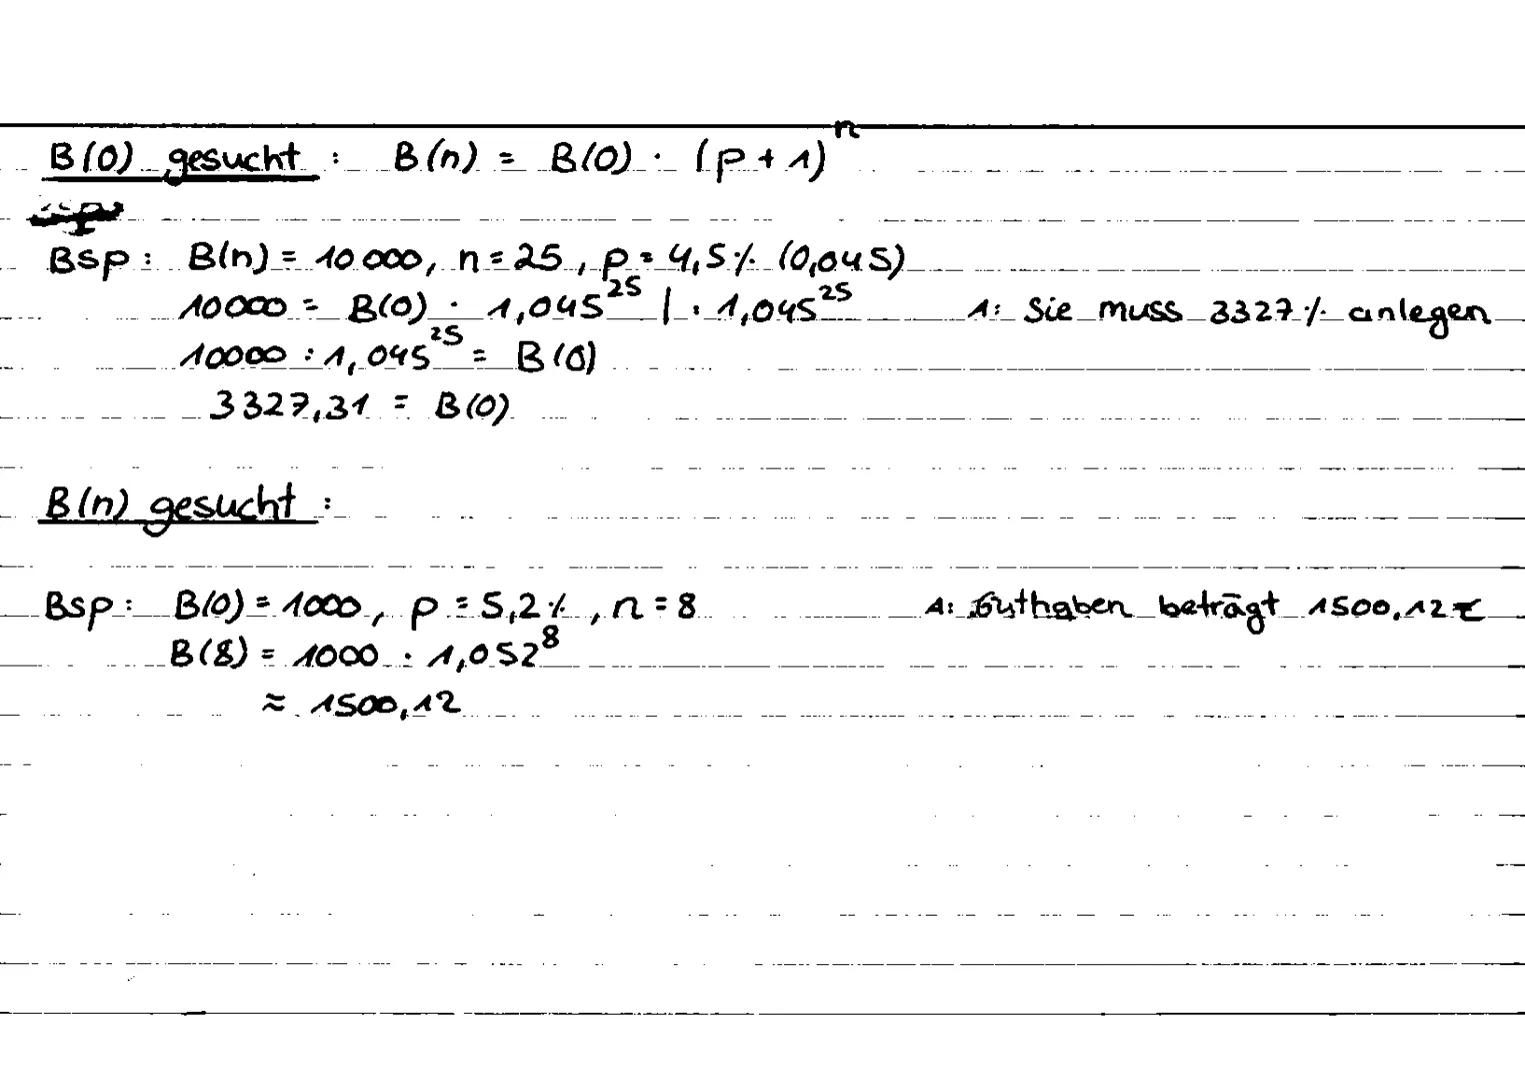 B(0) gesucht : B(n) = B(0) · (p + 1)^n
Bsp : B(n) = 10 000, n = 25, p = 4,5 % (0,045)
10000 = B(0) · 1,045^25 | : 1,045^25 A: Sie muss 3327 % anlegen
10000 : 1,045^25 = B(0)
3327,31 = B(0)
B(n) gesucht :
Bsp : B(0) = 1000, p = 5,2 %, n = 8 A: Guthaben beträgt 1500,12 €
B(8) = 1000 · 1,052^8
≈ 1500,12